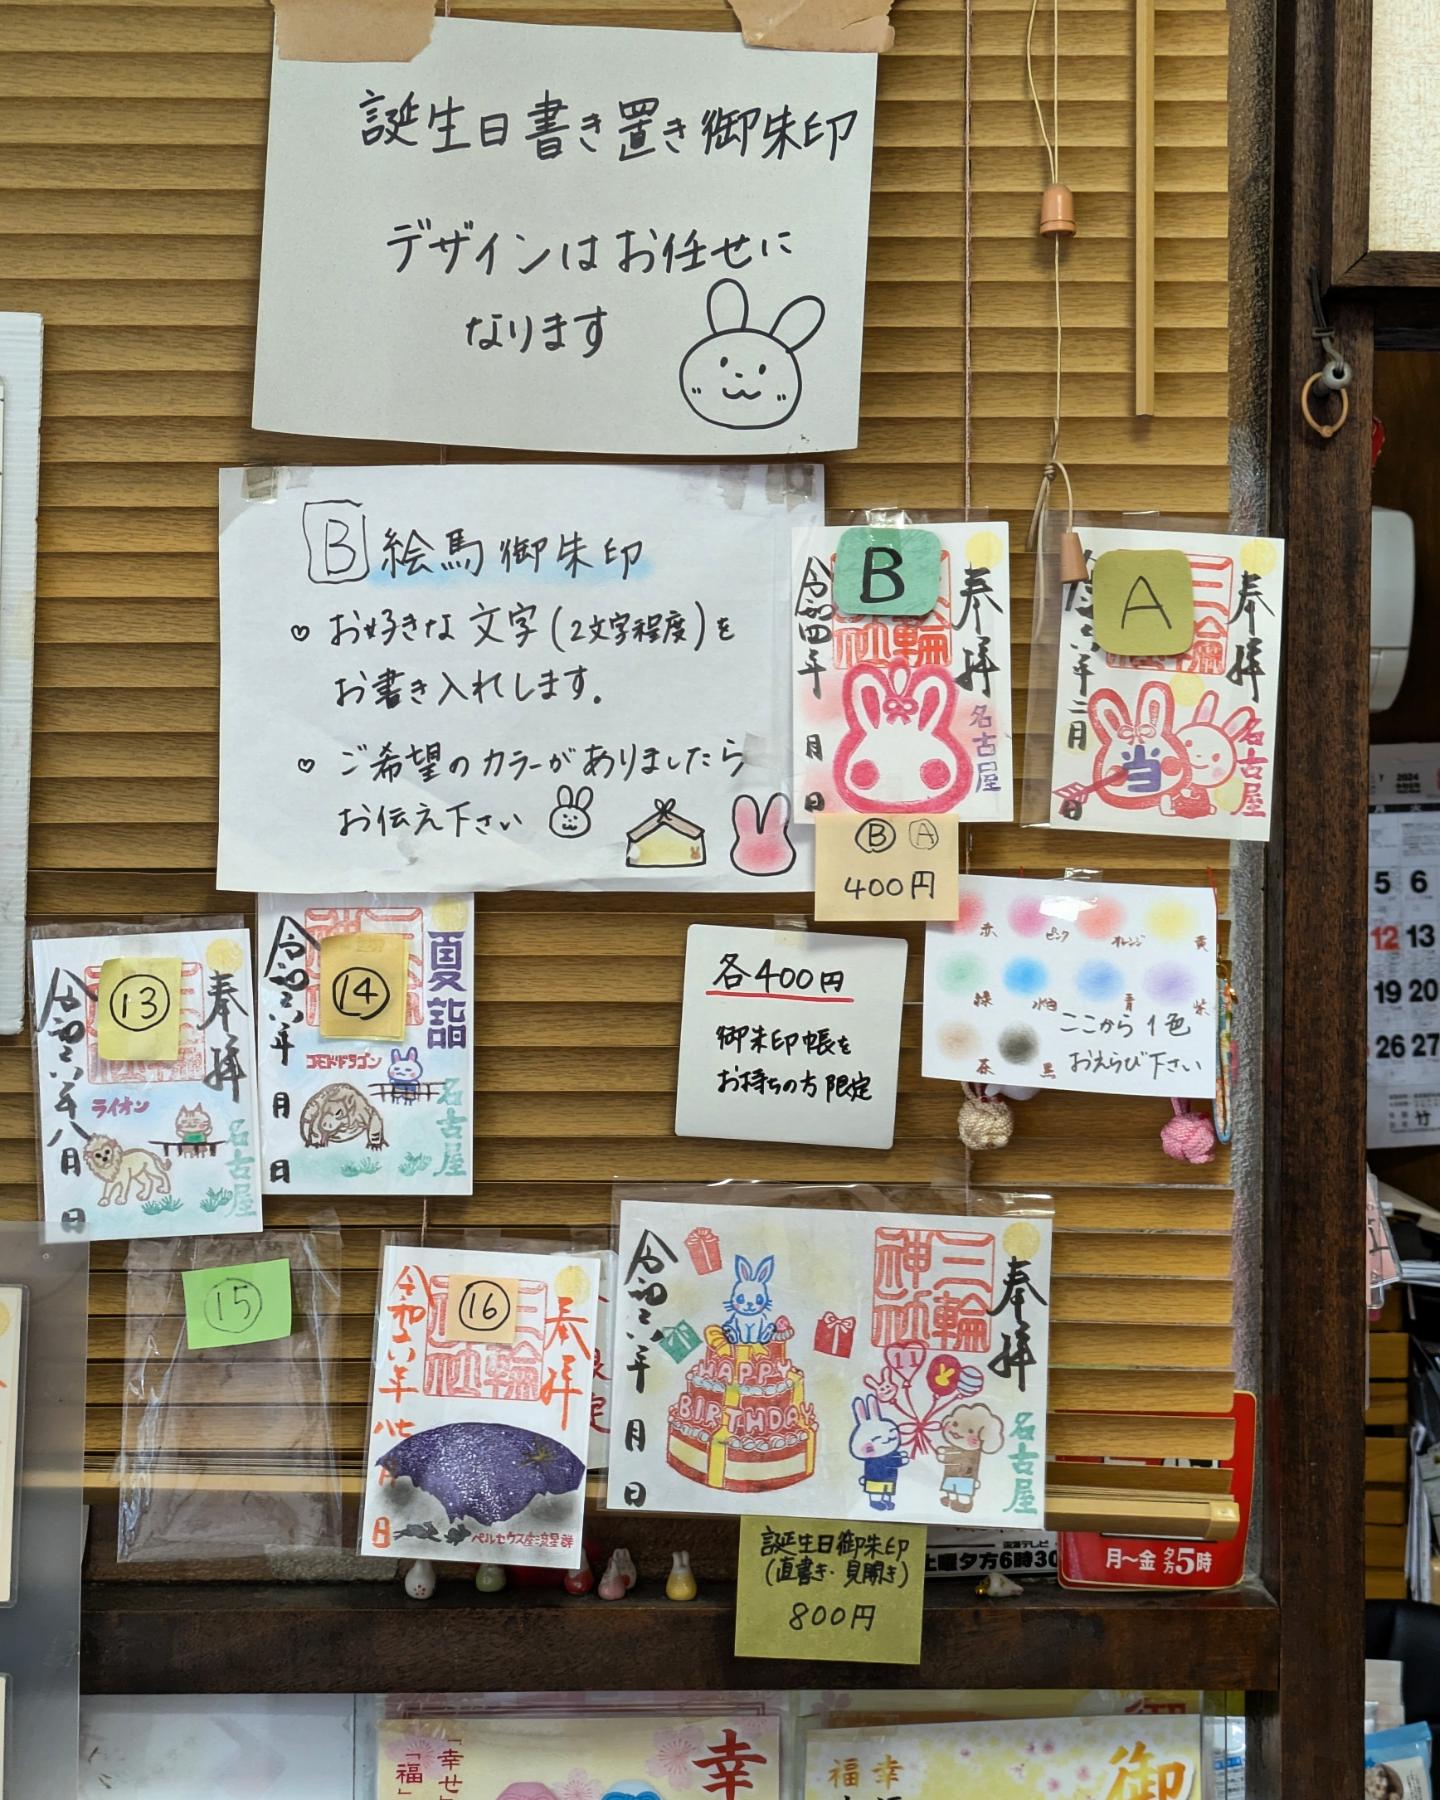 誕生日書き置き御朱印
デザインはお任せに
なります
B 絵馬御朱印
♡ お好きな文字(2文字程度)を
お書き入れします。
♡ ご希望のカラーがありましたら
お伝え下さい
B
奉拝
三輪神社
令和四年 月 日
名古屋
A
奉拝
三輪
年二月 日
当
名古屋
Ⓑ Ⓐ
400円
赤 ピンク オレンジ 黄
緑 水色 青 紫
茶 黒
ここから1色
おえらび下さい
各400円
御朱印帳を
お持ちの方限定
⑬
奉拝
令和六年八月 日
ライオン
名古屋
⑭
夏詣
令和六年 月 日
コモドドラゴン
名古屋
⑮
⑯
奉拝
三輪神社
令和六年 月 日
ペルセウス座流星群
奉拝
三輪神社
令和六年 月 日
HAPPY
BIRTHDAY
11
名古屋
誕生日御朱印
(直書き・見開き)
800円
土曜夕方6時30
月〜金 夕方5時
2024
5 6
12 13
19 20
26 27
竹
「幸せ」
「福」
幸
幸
福
御